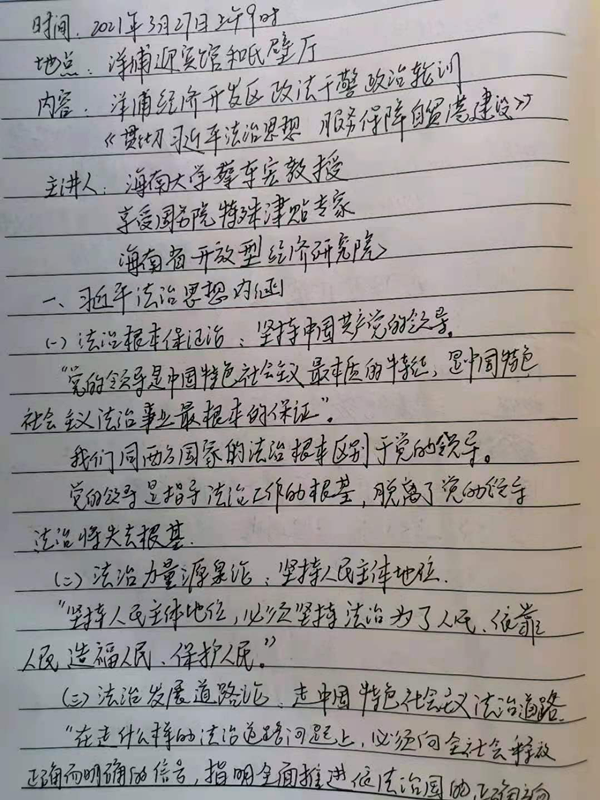 时间：2021年3月27日上午9时
地点：洋浦迎宾馆和氏璧厅
内容：洋浦经济开发区政法干警政治轮训
《贯彻习近平法治思想 服务保障自贸港建设》
主讲人：海南大学蔡东宏教授
享受国务院特殊津贴专家
海南省开放型经济研究院
一、习近平法治思想内涵
(一)法治根本保证论：坚持中国共产党的领导。
“党的领导是中国特色社会主义最本质的特征，是中国特色
社会主义法治事业最根本的保证”。
我们同西方国家的法治根本区别于党的领导。
党的领导是指导法治工作的根基，脱离了党的领导
法治将失去根基.
(二)法治力量源泉论：坚持人民主体地位.
“坚持人民主体地位，必须坚持法治为了人民、依靠
人民造福人民、保护人民。”
(三)法治发展道路论：走中国特色社会主义法治道路.
“在走什么样的法治道路问题上，必须向全社会释放
正确而明确的信号，指明全面推进依法治国的正确方向